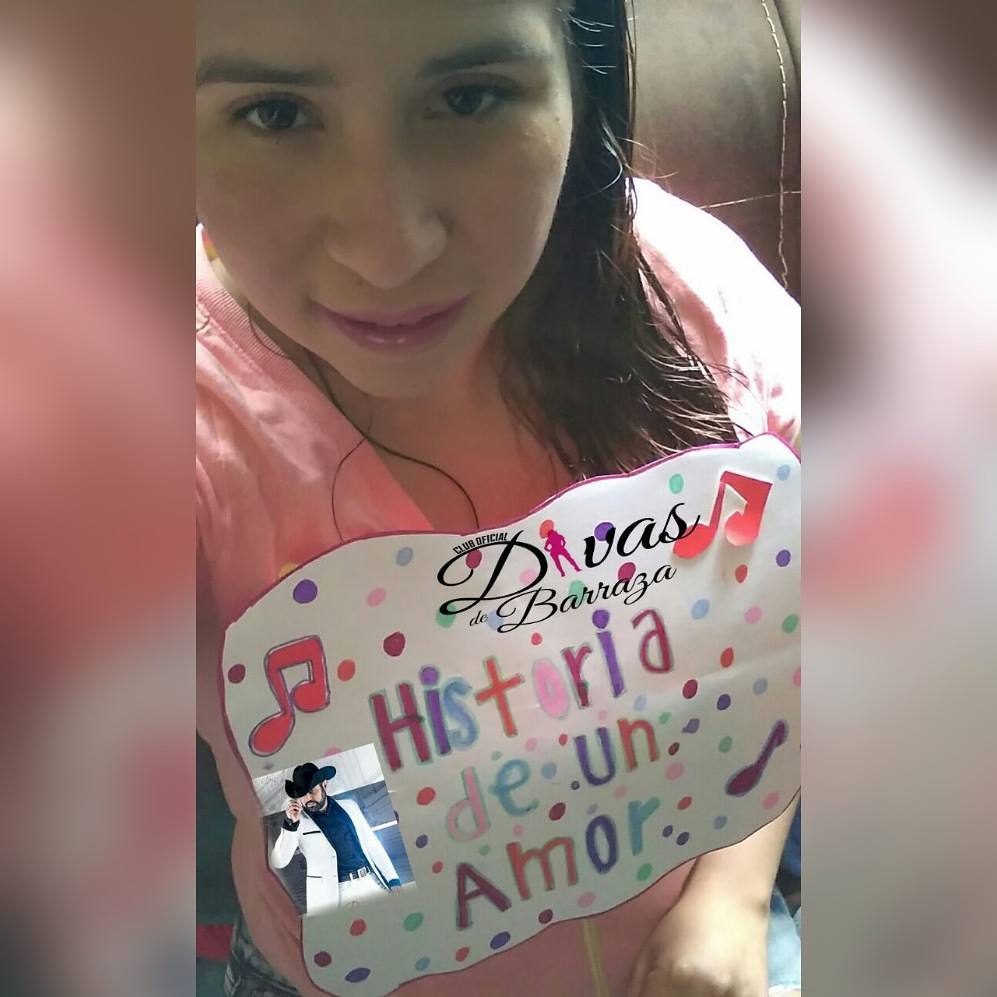 CLUB OFICIAL
Divas
de Barraza
Historia
de un
Amor